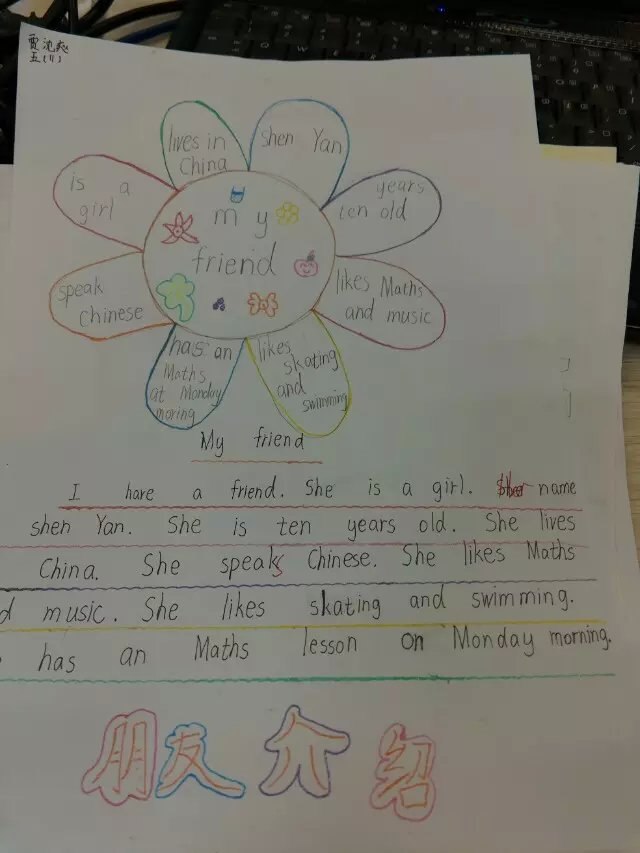 五(11)
lives in
China
shen Yan
is a
girl
years
ten old
my
friend
speak
Chinese
likes Maths
and music
has an
Maths
at Monday
moring
likes
skating
and
swimming
My friend
I have a friend. She is a girl. Her name
shen Yan. She is ten years old. She lives
China. She speaks Chinese. She likes Maths
d music. She likes skating and swimming.
has an Maths lesson on Monday morning.
朋友介绍